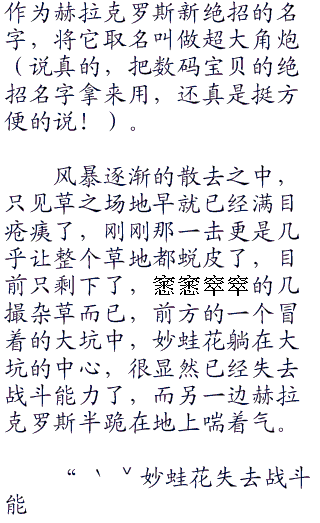 作为赫拉克罗斯新绝招的名
字，将它取名叫做超大角炮
（说真的，把数码宝贝的绝
招名字拿来用，还真是挺方
便的说！）。
风暴逐渐的散去之中，
只见草之场地早就已经满目
疮痍了，刚刚那一击更是几
乎让整个草地都蜕皮了，目
前只剩下了，窸窸窣窣的几
撮杂草而已，前方的一个冒
着的大坑中，妙蛙花躺在大
坑的中心，很显然已经失去
战斗能力了，而另一边赫拉
克罗斯半跪在地上喘着气。
“｀ˇ妙蛙花失去战斗
能